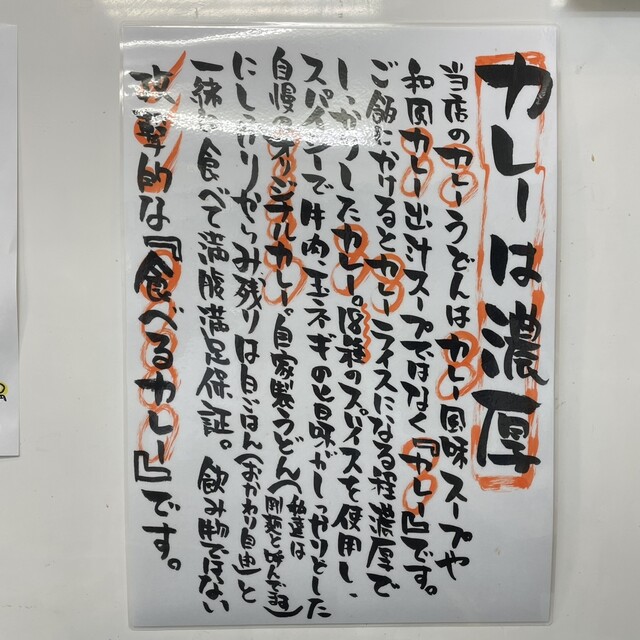 カレーは濃厚
当店のカレーうどんはカレー風味スープや
和風カレー出汁スープではなく『カレー』です。
ご飯にかけるとカレーライスになる程濃厚で
しっかりしたカレー。18種のスパイスを使用し、
スパイシーで牛肉、玉ネギの旨味がしっかりとした
自慢のオリジナルカレー。自家製うどん(私達は剛麺と呼んでます)
にしっかりからみ残りは白ごはん(おかわり自由)と
一緒に食べて満腹満足保証。飲み物ではない
攻撃的な『食べるカレー』です。